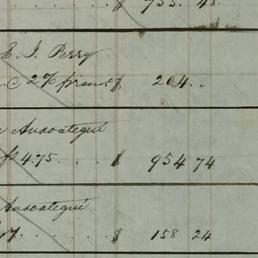 $ 733. 43
E. J. Perry
2% prem $ 204. "
Ansoategui
4.75 . . $ 954 74
Ansoategui
17 . . . . $ 158 24